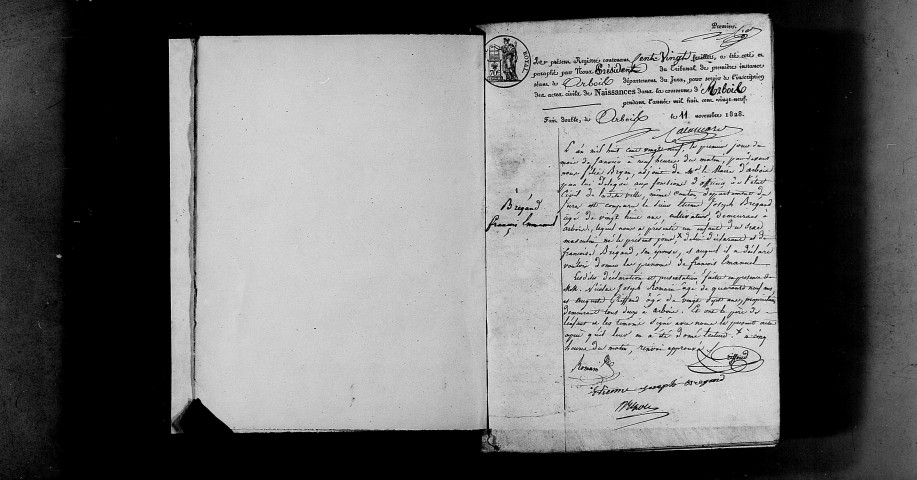 Premier.
ROYAL
Le présent Registre contenant Cent Vingt feuillets, a été coté et
paraphé par Nous Président du Tribunal de première instance
séant à Arbois département du Jura, pour servir à l'inscription
des actes civils de Naissances dans la commune d'Arbois
pendant l'année mil huit cent vingt-neuf.
Fait double, à Arbois le 11 novembre 1828.
L'an mil huit cent vingt neuf, le premier jour du
mois de Janvier à neuf heures du matin, par devant
nous adjoint de Mr le Maire d'arbois
par lui délégué aux fonctions d'officier de l'état
Civil de ladite ville, même canton département du
Jura est comparu le sieur Etienne Joseph Bregand
âgé de vingt ans, cultivateur, demeurant à
arbois, lequel nous a présenté un enfant du sexe
masculin né le présent jour, x de lui déclarant et de
françoise Brégand, son épouse, et auquel il a déclaré
vouloir donner les prénoms de françois Emanuel
Bregand
françois Emanuel
Lesdites déclaration et présentation faites en présence de
MM. Nicolas Joseph Romain âgé de quarante neuf ans,
et Auguste Griffond âgé de vingt sept ans, propriétaires
demeurant tous deux à arbois. Et ont le père de
l'enfant et les témoins signé avec nous le présent acte
après qu'il leur en a été donné lecture. x à cinq
heures du matin, renvoi approuvé.
Romain
Griffond
Etienne joseph Bregand